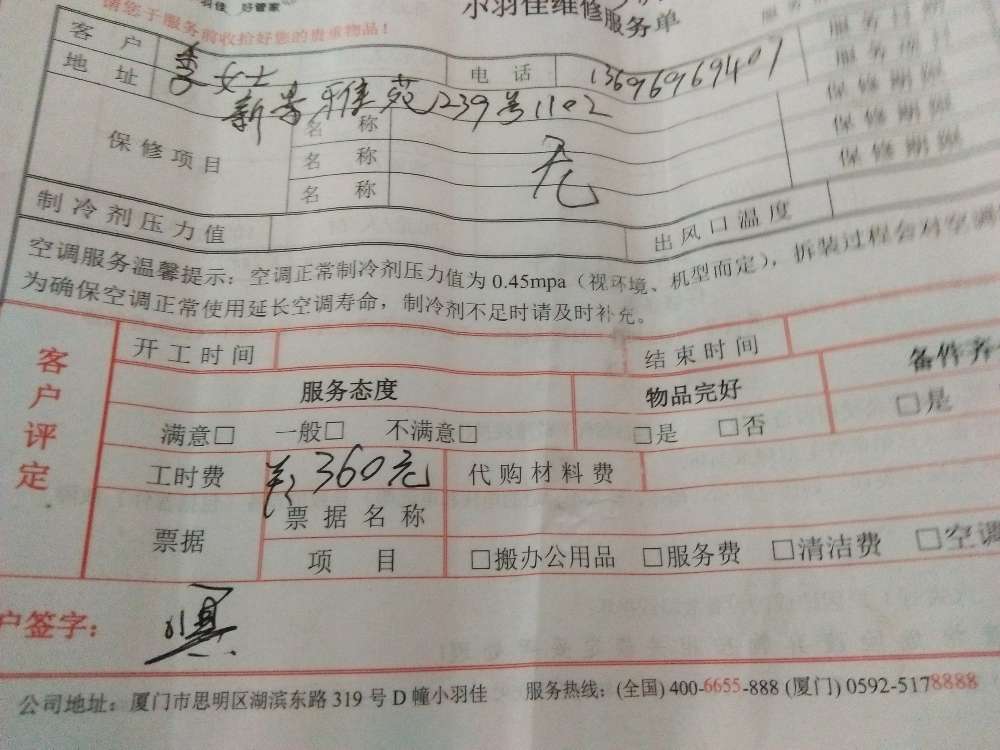 请您于服务前收拾好您的贵重物品!
小羽佳 好管家
小羽佳维修服务单
客户 李女士 电话 13696969401
地址 新景雅苑1239号1102
服务日期
服务项目
保修项目 名称 无 保修期限
名称 保修期限
名称 保修期限
制冷剂压力值 出风口温度
空调服务温馨提示:空调正常制冷剂压力值为0.45mpa(视环境、机型而定),拆装过程会对空调
为确保空调正常使用延长空调寿命,制冷剂不足时请及时补充。
客户评定
开工时间 结束时间
服务态度 物品完好 备件齐
满意□ 一般□ 不满意□ □是 □否 □是
工时费 360元 代购材料费
票据 票据名称
项目 □搬办公用品 □服务费 □清洁费 □空调
户签字:
公司地址:厦门市思明区湖滨东路319号D幢小羽佳 服务热线:(全国)400-6655-888 (厦门)0592-5178888